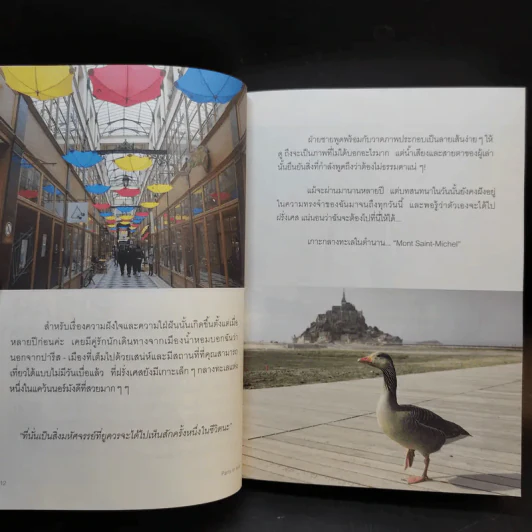 สำหรับเรื่องความฝังใจและความใฝ่ฝันนั้นเกิดขึ้นตั้งแต่เมื่อ
หลายปีก่อนค่ะ เคยมีคู่รักนักเดินทางจากเมืองน้ำหอมบอกฉันว่า
นอกจากปารีส - เมืองที่เต็มไปด้วยเสน่ห์และมีสถานที่ที่คุณสามารถ
เที่ยวได้แบบไม่มีวันเบื่อแล้ว ที่ฝรั่งเศสยังมีเกาะเล็ก ๆ กลางทะเลแห่ง
หนึ่งในแคว้นนอร์มังดีที่สวยมาก ๆ ๆ
"ที่นั่นเป็นสิ่งมหัศจรรย์ที่ยูควรจะได้ไปเห็นสักครั้งหนึ่งในชีวิตนะ"
10
ฝ่ายชายพูดพร้อมกับวาดภาพประกอบเป็นลายเส้นง่าย ๆ ให้
ดู ถึงจะเป็นภาพที่ไม่ได้บอกอะไรมาก แต่น้ำเสียงและสายตาของผู้เล่า
นั้นยืนยันสิ่งที่กำลังพูดถึงว่าต้องไม่ธรรมดาแน่ ๆ!
แม้จะผ่านมานานหลายปี แต่บทสนทนาในวันนั้นยังคงฝังอยู่
ในความทรงจำของฉันมาจนถึงทุกวันนี้ และพอรู้ว่าตัวเองจะได้ไป
ฝรั่งเศส แน่นอนว่าฉันจะต้องไปที่นี่ให้ได้...
เกาะกลางทะเลในตำนาน... "Mont Saint-Michel"